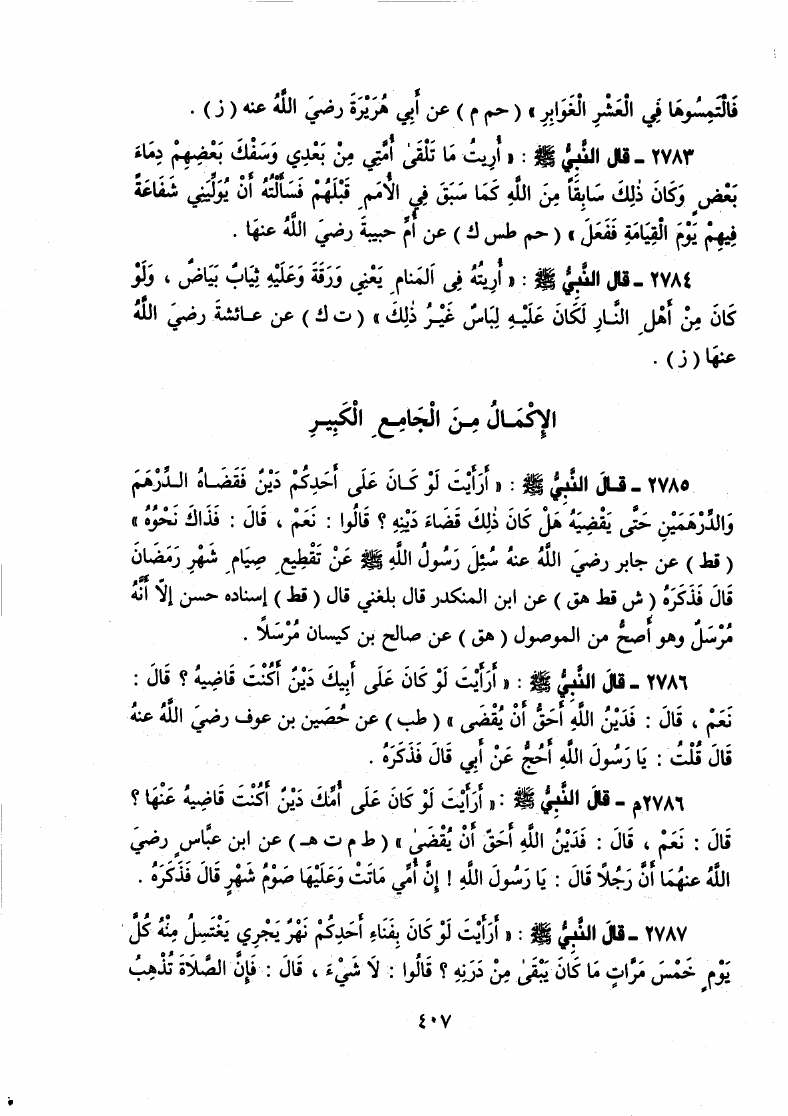 فَالْتَمِسُوهَا فِي الْعَشْرِ الْغَوَابِرِ » ( حم م ) عن أَبِي هُرَيْرَةَ رضيَ اللَّهُ عنه ( ز ) .
٢٧٨٣ - قال النَّبِيُّ ﷺ : « أُرِيتُ مَا تَلْقَىٰ أُمَّتِي مِنْ بَعْدِي وَسَفْكَ بَعْضِهِمْ دِمَاءَ
بَعْضٍ وَكَانَ ذٰلِكَ سَابِقاً مِنَ اللَّهِ كَمَا سَبَقَ فِي الأُمَمِ قَبْلَهُمْ فَسَأَلْتُهُ أَنْ يُوَلِّيَنِي شَفَاعَةً
فِيهِمْ يَوْمَ الْقِيَامَةِ فَفَعَلَ » ( حم طس ك ) عن أُمِّ حبيبةَ رضيَ اللَّهُ عنهَا .
٢٧٨٤ - قال النَّبِيُّ ﷺ : « أُرِيتُهُ فِي الْمَنامِ يَعْنِي وَرَقَةَ وَعَلَيْهِ ثِيَابٌ بَيَاضٌ ، وَلَوْ
كَانَ مِنْ أَهْلِ النَّارِ لَكَانَ عَلَيْهِ لِبَاسٌ غَيْرُ ذٰلِكَ » ( ت ك ) عن عائشةَ رضيَ اللَّهُ
عنهَا ( ز ) .
الإِكْمَالُ مِنَ الْجَامِعِ الْكَبِيرِ
٢٧٨٥ - قالَ النَّبِيُّ ﷺ : « أَرَأَيْتَ لَوْ كَانَ عَلَى أَحَدِكُمْ دَيْنٌ فَقَضَاهُ الدِّرْهَمَ
وَالدِّرْهَمَيْنِ حَتَّى يَقْضِيَهُ هَلْ كَانَ ذٰلِكَ قَضَاءَ دَيْنِهِ ؟ قَالُوا : نَعَمْ ، قَالَ : فَذَاكَ نَحْوُهُ »
( قط ) عن جابر رضيَ اللَّهُ عنهُ سُئِلَ رَسُولُ اللَّهِ ﷺ عَنْ تَقْطِيعِ صِيَامِ شَهْرِ رَمَضَانَ
قَالَ فَذَكَرَهُ ( ش قط هق ) عن ابن المنكدر قال بلغني قال ( قط ) إسناده حسن إلاَّ أَنَّهُ
مُرْسَلٌ وهو أَصحُّ من الموصول ( هق ) عن صالح بن كيسان مُرْسَلاً .
٢٧٨٦ - قالَ النَّبِيُّ ﷺ : « أَرَأَيْتَ لَوْ كَانَ عَلَى أَبِيكَ دَيْنٌ أَكُنْتَ قَاضِيهُ ؟ قَالَ :
نَعَمْ ، قَالَ : فَدَيْنُ اللَّهِ أَحَقُّ أَنْ يُقْضَى » ( طب ) عن حُصَين بن عوف رضيَ اللَّهُ عنهُ
قَالَ قُلْتُ : يَا رَسُولَ اللَّهِ أَحُجُّ عَنْ أَبِي قَالَ فَذَكَرَهُ .
٢٧٨٦م - قالَ النَّبِيُّ ﷺ : « أَرَأَيْتَ لَوْ كَانَ عَلَى أُمِّكَ دَيْنٌ أَكُنْتَ قَاضِيهُ عَنْهَا ؟
قَالَ : نَعَمْ ، قَالَ : فَدَيْنُ اللَّهِ أَحَقُّ أَنْ يُقْضَىٰ » ( ط م ت هـ ) عن ابن عبَّاسٍ رضيَ
اللَّهُ عنهُمَا أَنَّ رَجُلاً قَالَ : يَا رَسُولَ اللَّهِ ! إِنَّ أُمِّي مَاتَتْ وَعَلَيْهَا صَوْمُ شَهْرٍ قَالَ فَذَكَرَهُ .
٢٧٨٧ - قالَ النَّبِيُّ ﷺ : « أَرَأَيْتَ لَوْ كَانَ بِفَنَاءِ أَحَدِكُمْ نَهْرٌ يَجْرِي يَغْتَسِلُ مِنْهُ كُلَّ
يَوْمٍ خَمْسَ مَرَّاتٍ مَا كَانَ يَبْقَىٰ مِنْ دَرَنِهِ ؟ قَالُوا : لاَ شَيْءَ ، قَالَ : فَإِنَّ الصَّلاَةَ تُذْهِبُ
٤٠٧